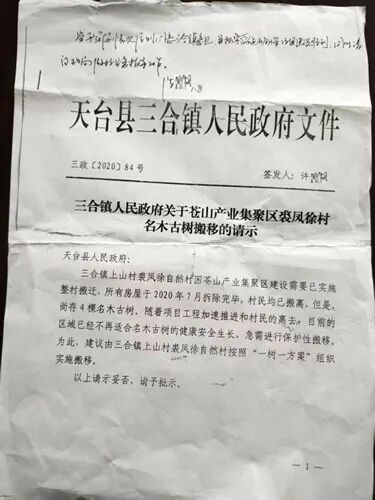 1.8
天台县三合镇人民政府文件
三政〔2020〕84号 签发人：许
三合镇人民政府关于苍山产业集聚区裘凤徐村
名木古树搬移的请示
天台县人民政府：
三合镇上山村裘凤徐自然村因苍山产业集聚区建设需要已实施
整村搬迁，所有房屋于2020年7月拆除完毕，村民均已搬离，但是，
尚存4棵名木古树，随着项目工程加速推进和村民的离去，目前的
区域已经不再适合名木古树的健康安全生长，急需进行保护性搬移。
为此，建议由三合镇上山村裘凤徐自然村按照“一树一方案”组织
实施搬移。
以上请示妥否，请予批示。
— 1 —